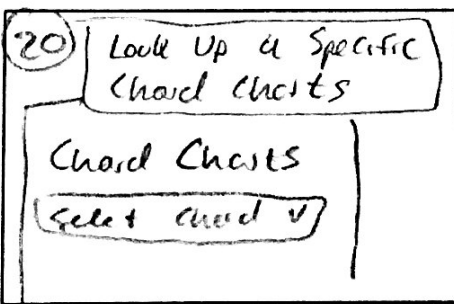 20
Look Up a Specific
Chord Charts
Chord Charts
Select Chord v